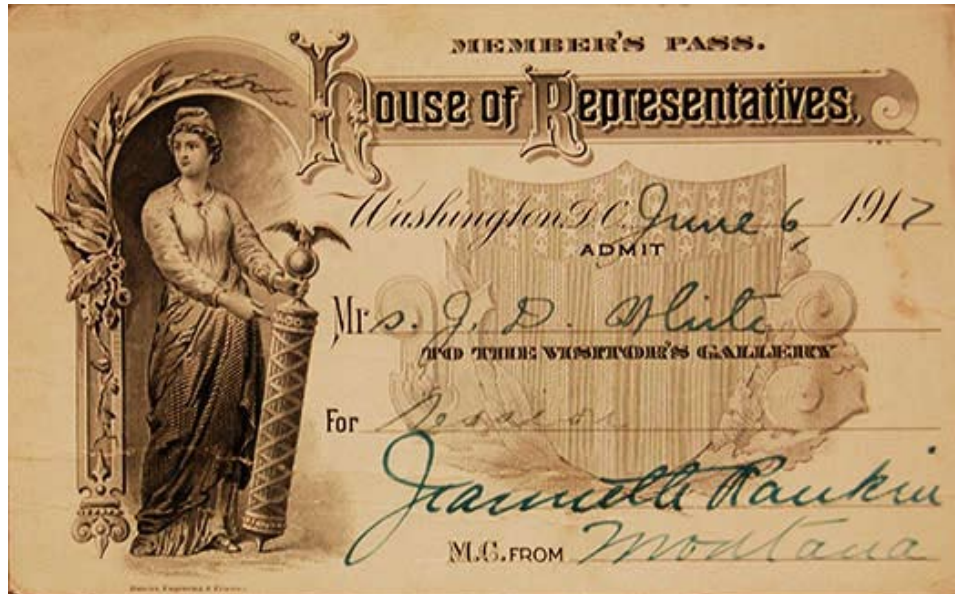 MEMBER'S PASS.
House of Representatives,
Washington, D.C. June 6, 1917
ADMIT
Mrs. J. D. White
TO THE VISITOR'S GALLERY
For Session
Jeannette Rankin
M.C. FROM Montana